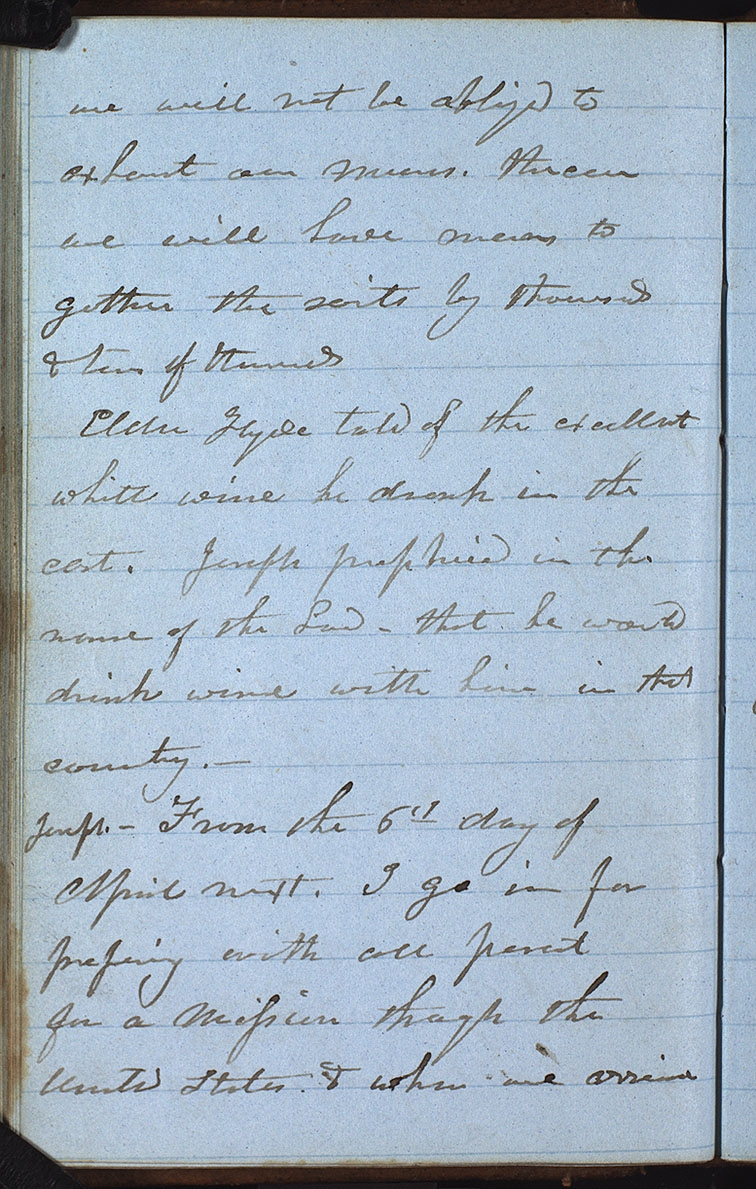 we will not be obliged to
exhaust our means. there
we will have means to
gather the saints by thousands
& tens of thousands
Elder Hyde told of the excellent
white wine he drank in the
east. Joseph prophesied in the
name of the Lord - that he would
drink wine with him in that
country. -
Joseph. - From the 6th day of
April next. I go in for
prepring with all present
for a mission through the
United States. & when we arrive